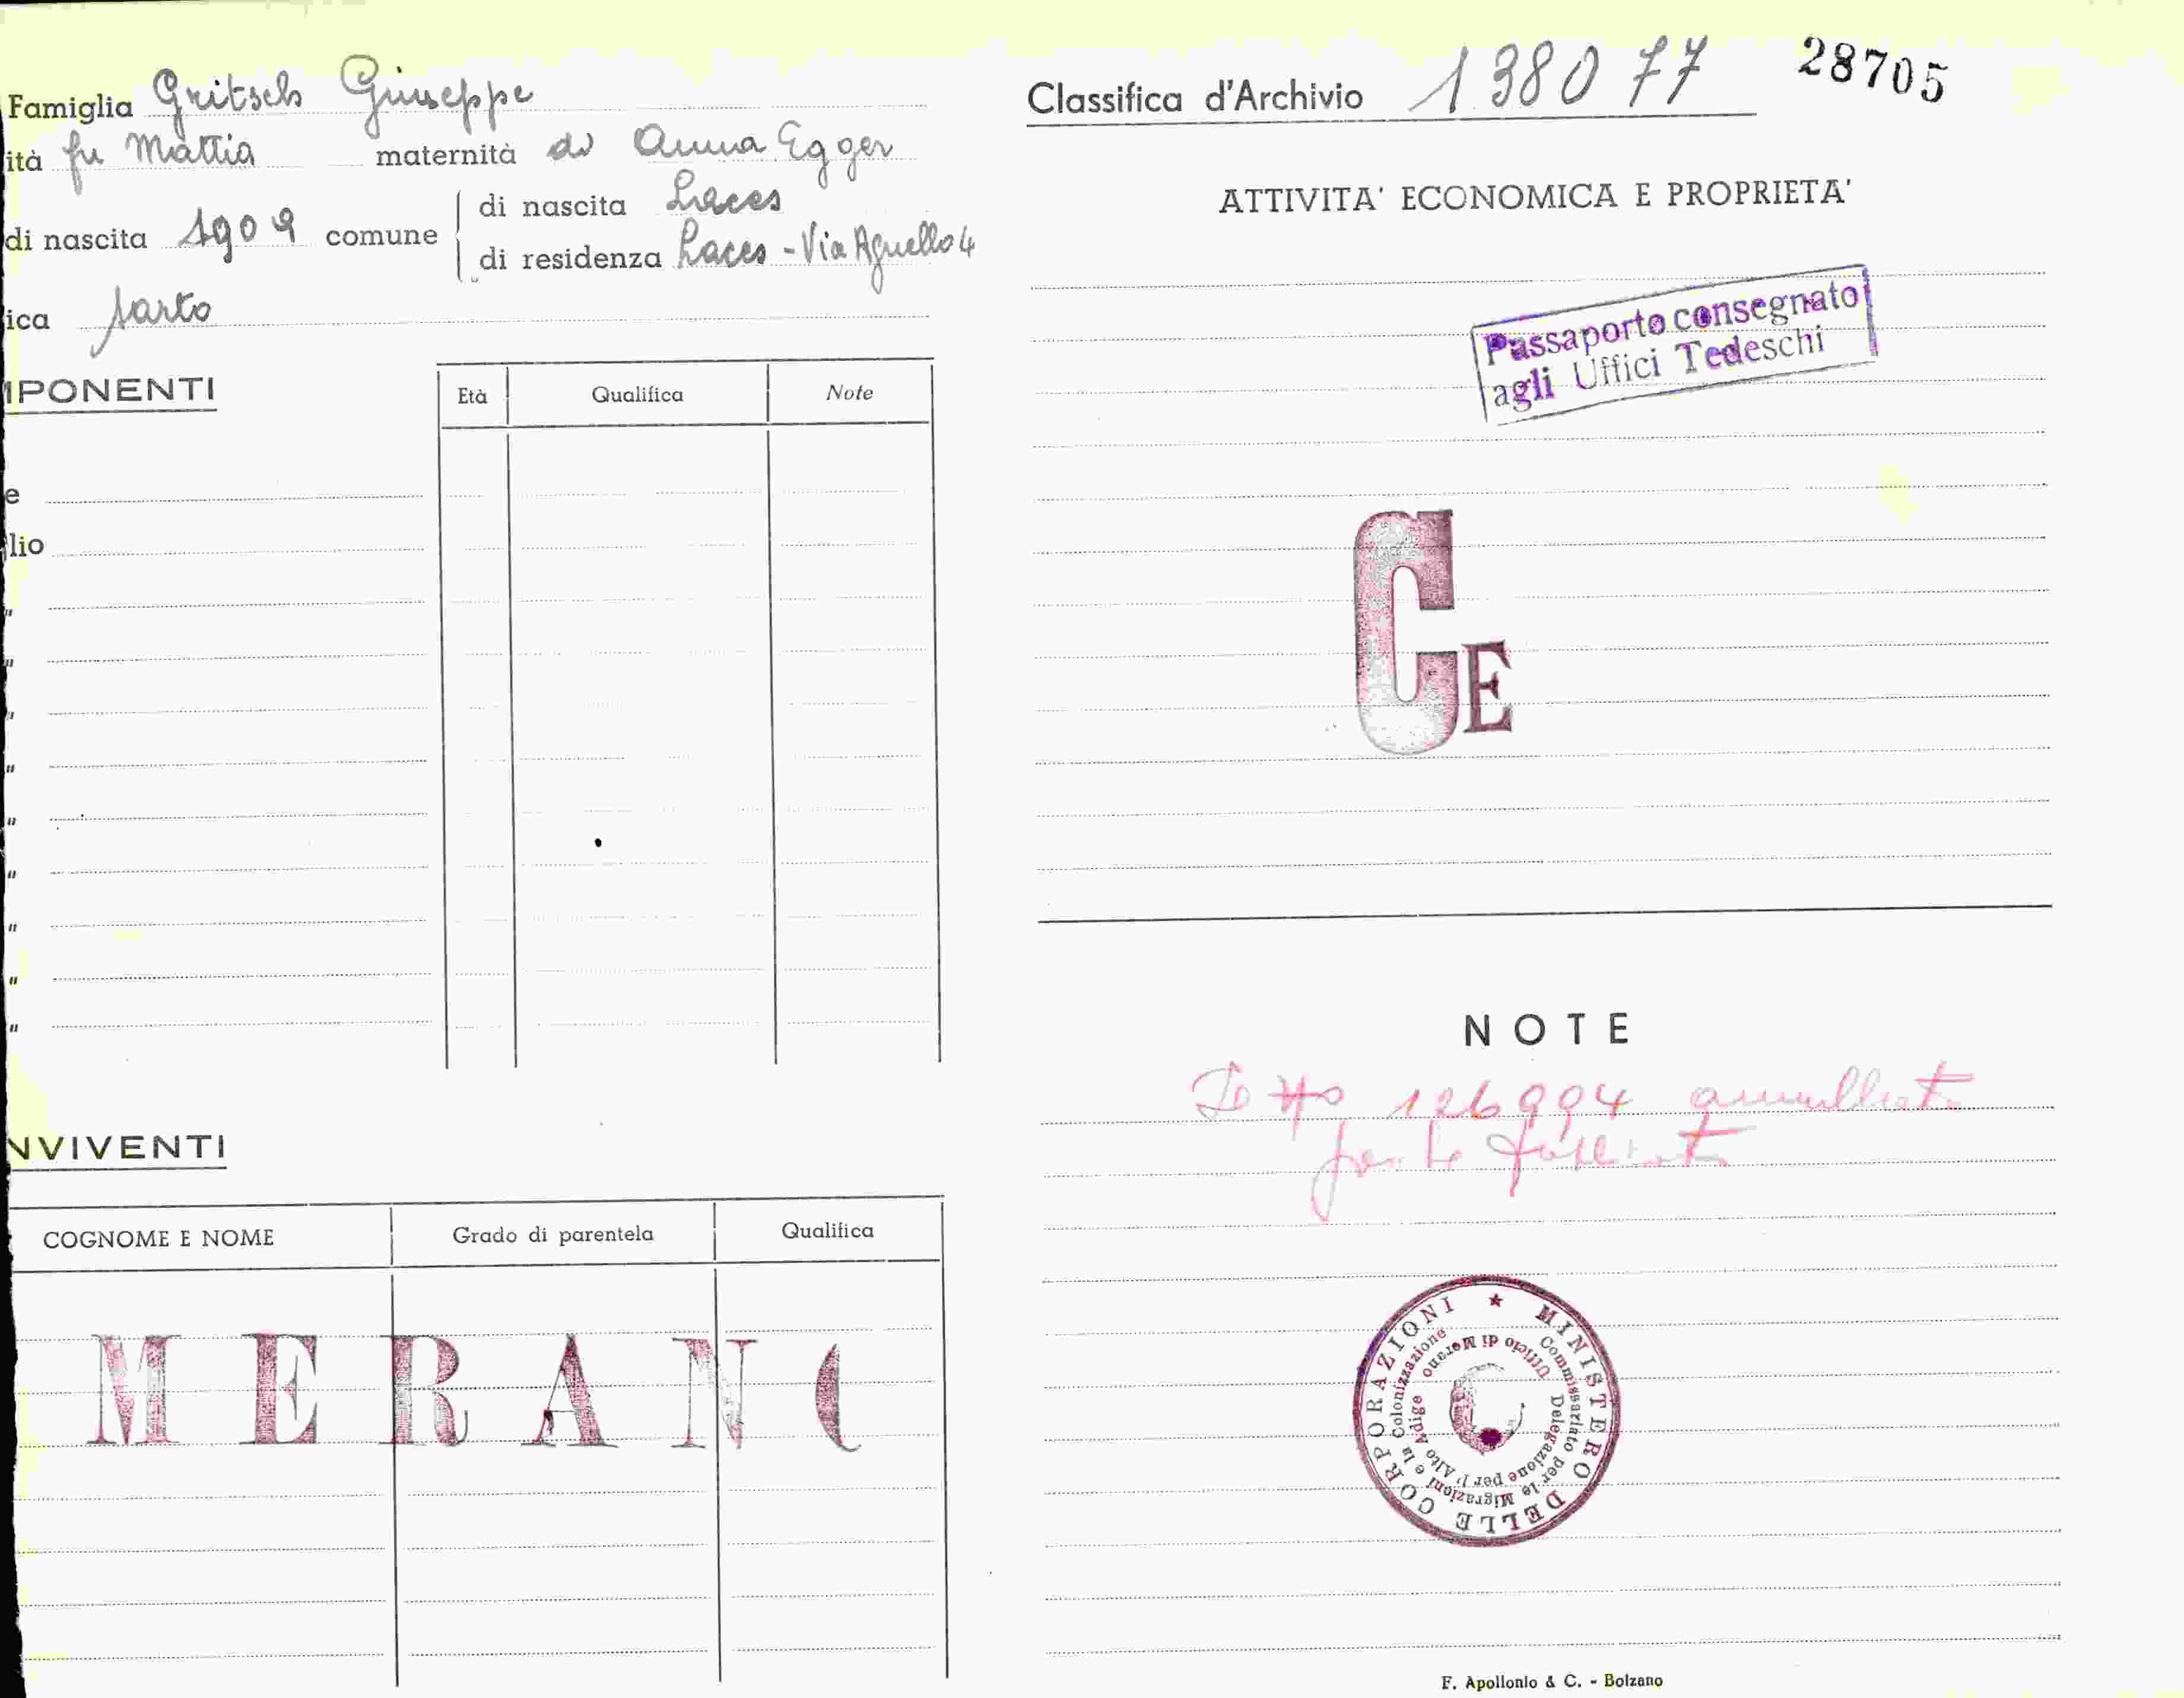 Famiglia Gritsch Giuseppe
ità fu Mattia maternità di Anna Egger
di nascita 1909 comune di nascita Laces
di residenza Laces - Via Agnello 4
ica sarto
MPONENTI
Età Qualifica Note
e
lio
"
"
"
"
"
"
"
"
"
NVIVENTI
COGNOME E NOME Grado di parentela Qualifica
MERANO
Classifica d'Archivio 138077 28705
ATTIVITA' ECONOMICA E PROPRIETA'
Passaporto consegnato
agli Uffici Tedeschi
CE
NOTE
126994 annullato
MINISTERO DELLE CORPORAZIONI ★
Commissariato per le Migrazioni e la Colonizzazione
Delegazione per l'Alto Adige
Ufficio di Merano
F. Apollonio & C. - Bolzano